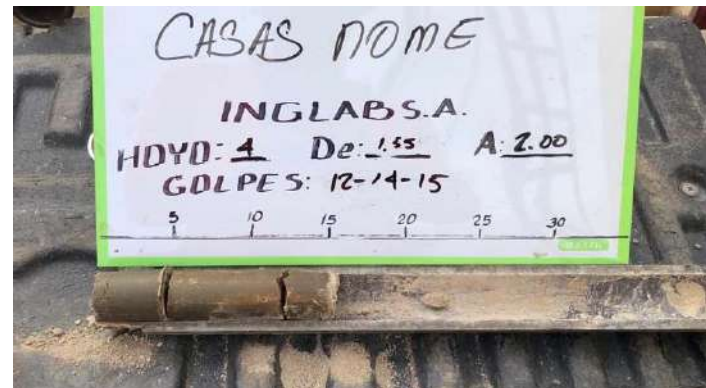 CASAS NOME
INGLAB S.A.
HOYO: 4 De: 1.55 A: 2.00
GOLPES: 12-14-15
5 10 15 20 25 30